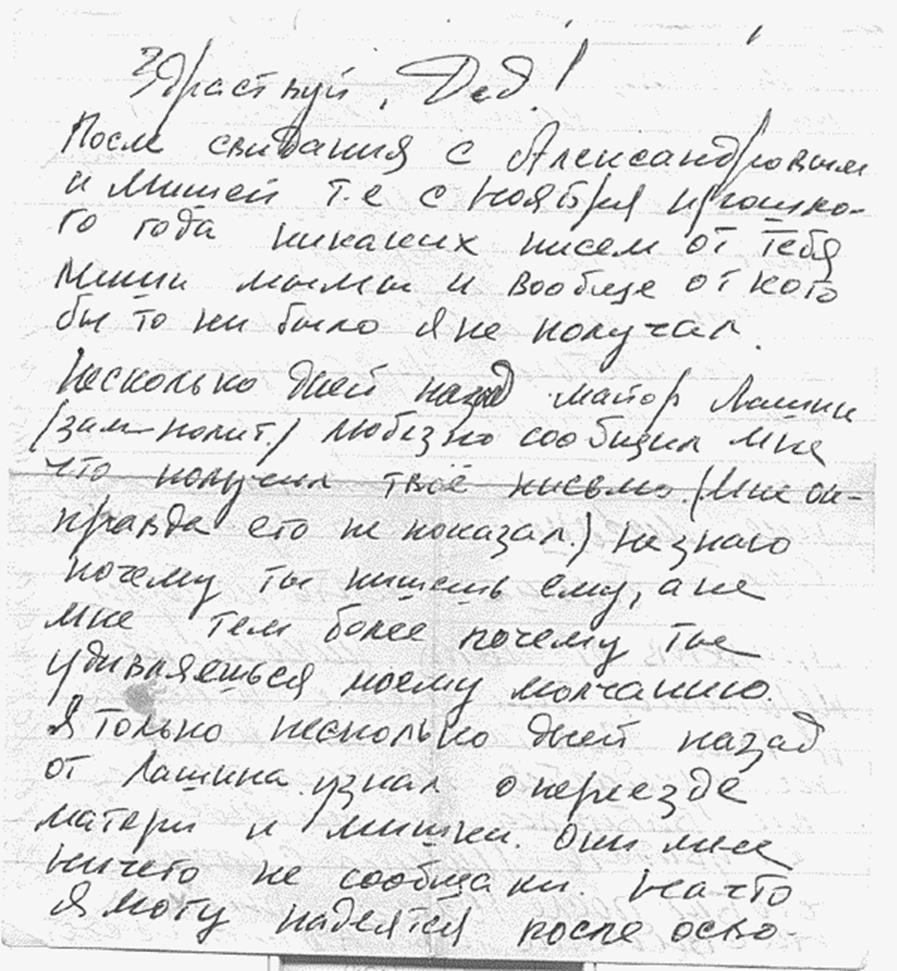 Здраствуй, Дед!
После свидания с Александровым
и Мишей т.е с ноября прошло-
го года никаких писем от тебя
Миши мымы и вообще от кого
бы то ни было я не получал.
Несколько дней назад майор Лашин
/зам-полит./ любезно сообщил мне
что получил твоё письмо. (Мне он-
правда его не показал.) Не знаю
почему ты пишешь ему, а не
мне тем более почему ты
удивляешься моему молчанию.
Я только несколько дней назад
от Лашина узнал о переезде
матери и Мишки. Они мне
ничего не сообщали. На что
я могу надеятся после осво-